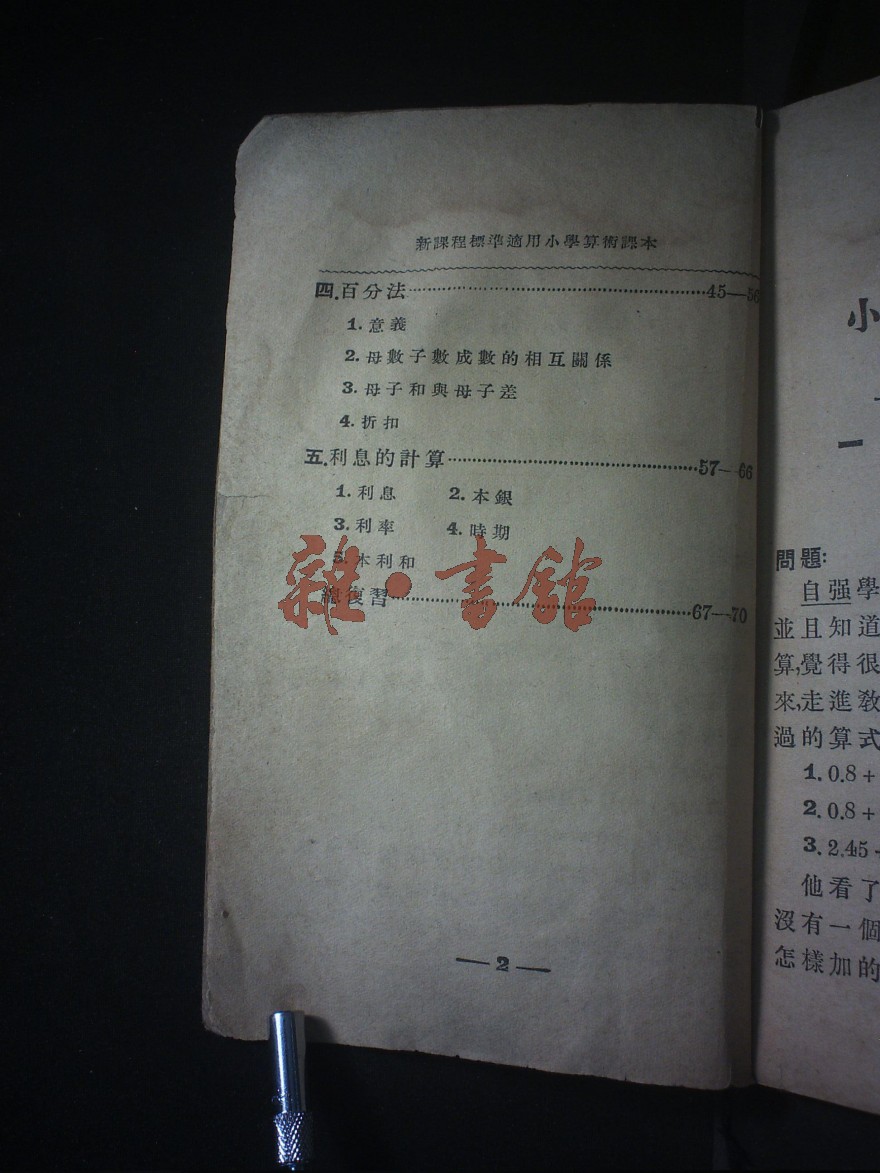 新課程標準適用小學算術課本
四.百分法 45—56
1. 意義
2. 母數子數成數的相互關係
3. 母子和與母子差
4. 折扣
五.利息的計算 57—66
1. 利息 2. 本銀
3. 利率 4. 時期
5. 本利和
總復習 67—70
— 2 —
雜·書館
小
一
問題:
自强學
並且知道
算,覺得很
來,走進教
過的算式
1. 0.8 +
2. 0.8 +
3. 2.45
他看了
沒有一個
怎樣加的